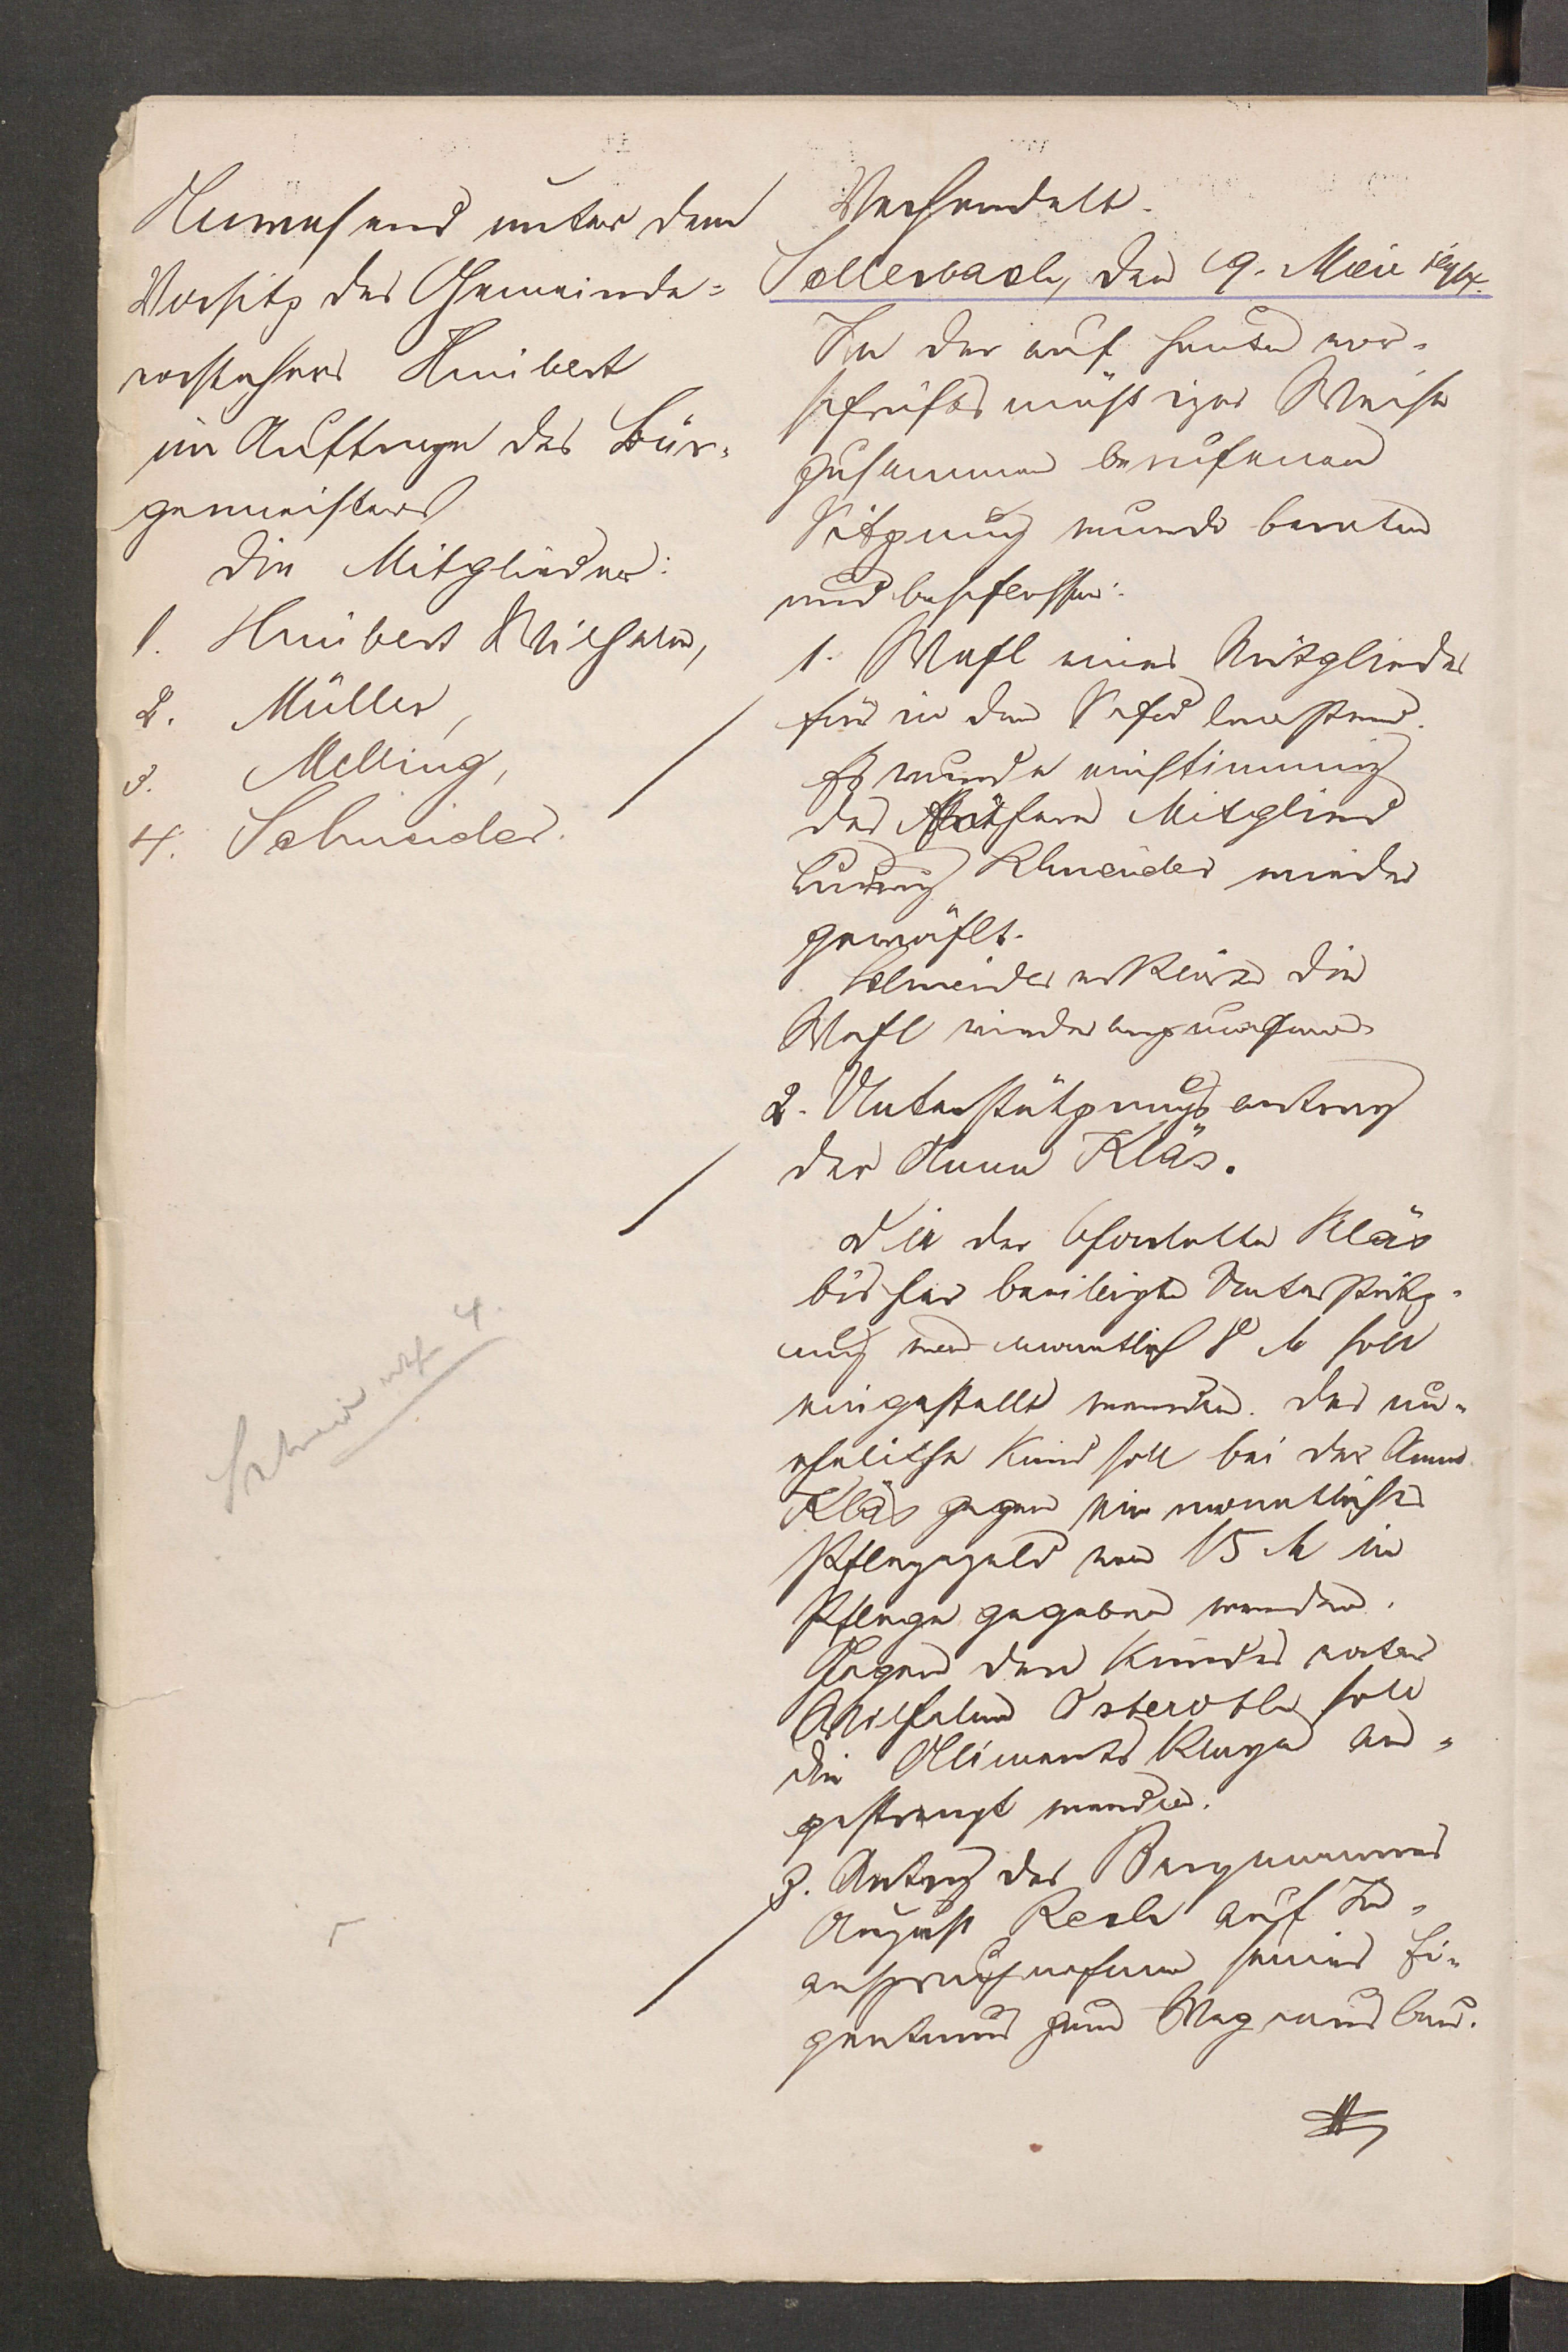 Anwesend unter dem
Vorsitz des Gemeinde=
vorstehers Huibert
im Auftrage des Bür-
germeisters
die Mitglieder:
1. Huibert Wilhelm,
2. Müller,
3. Melling,
4. Schneider.
Verhandelt.
Sellerbach, den 19. Mai
In der auf heute vor-
schriftsmäßiger Weise
zusammen berufenen
Sitzung wurde beraten
und beschlossen:
1. Wahl eines Mitgliedes
für in den Schulvorstand.
Es wurde einstimmig
das frühere Mitglied
Ludwig Schneider wieder
gewählt.
Schneider erklärte die
Wahl wieder anzunehmen
2. Unterstützungsantrag
der Anna Kläs.
Die der Kläs
bisher bewilligte Unterstütz-
ung von monatlich 8 M soll
eingestellt werden. Das un-
eheliche Kind soll bei der Anna
Kläs gegen ein monatliches
Pflegegeld von 15 M in
Pflege gegeben werden.
Gegen den Kindes vater
Wilhelm Osteroth soll
die Aliments Klage an-
gestrengt werden.
3. Antrag des Bergmannes
August Resch auf In-
anspruchnahme seines Ei-
gentums zum Wegeausbau.